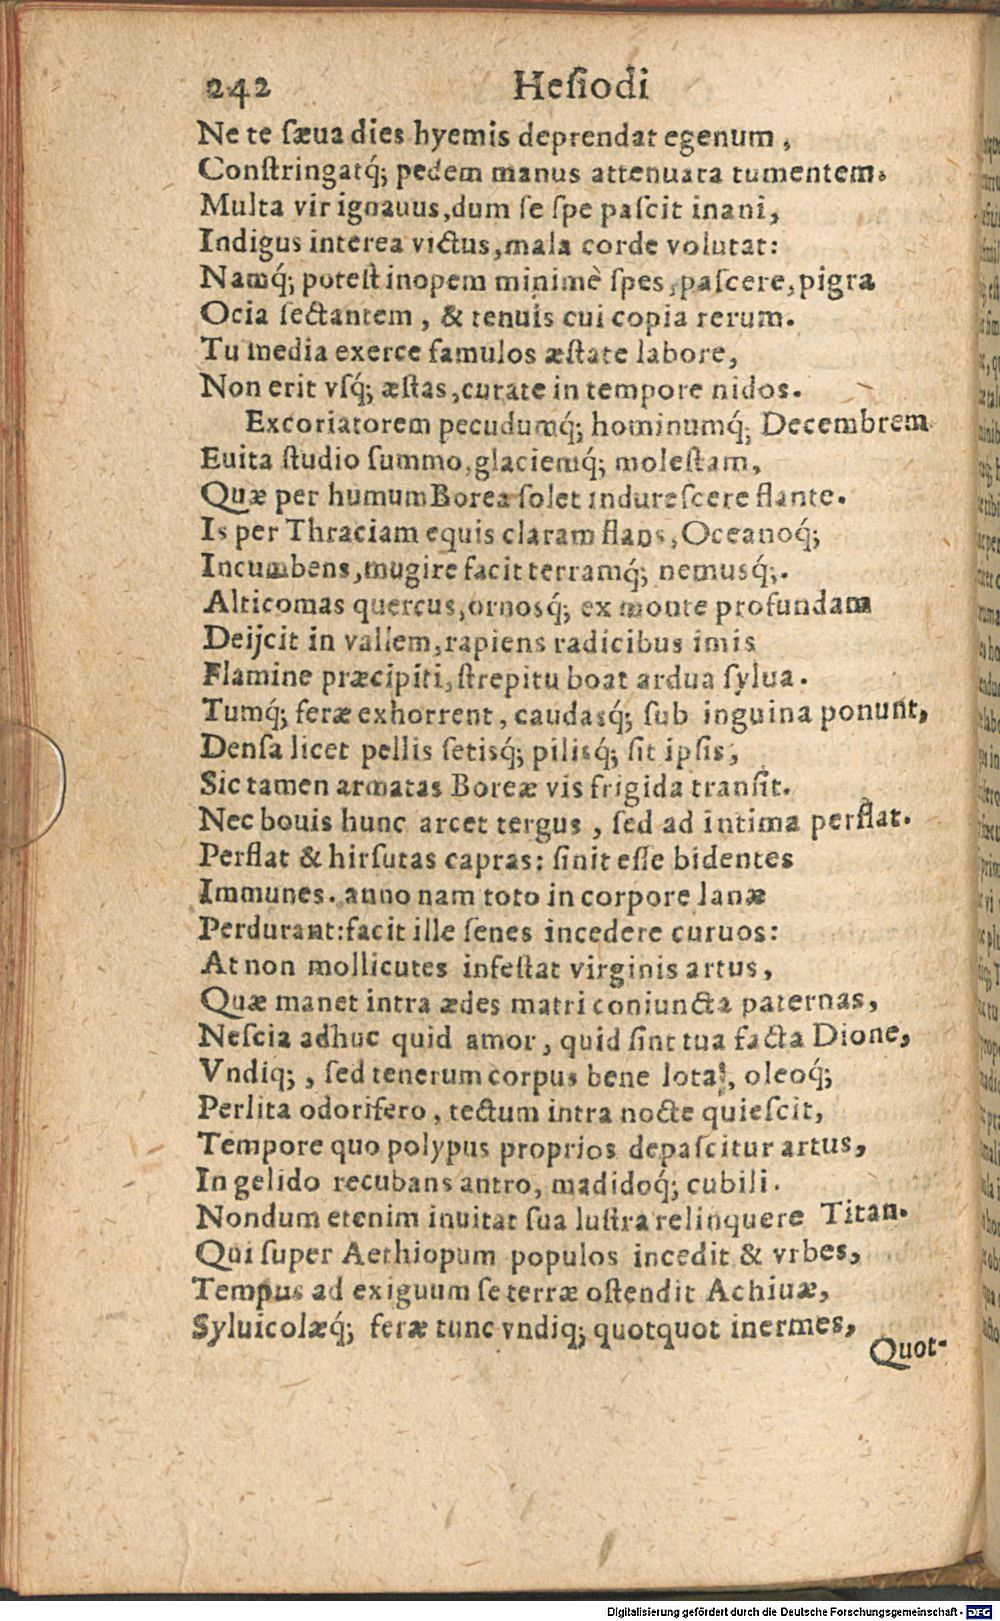 242 Heſiodi
Ne te ſæua dies hyemis deprendat egenum,
Conſtringatq́; pedem manus attenuata tumentem.
Multa vir ignauus, dum ſe ſpe paſcit inani,
Indigus interea victus, mala corde volutat:
Namq́; poteſt inopem minimè ſpes, paſcere, pigra
Ocia ſectantem, & tenuis cui copia rerum.
Tu media exerce famulos æſtate labore,
Non erit vſq́; æſtas, curate in tempore nidos.
Excoriatorem pecudumq́; hominumq́; Decembrem
Euita ſtudio ſummo, glaciemq́; moleſtam,
Quæ per humum Borea ſolet indureſcere flante.
Is per Thraciam equis claram flans, Oceanoq́;
Incumbens, mugire facit terramq́; nemusq́;.
Alticomas quercus, ornosq́; ex monte profundam
Deijcit in vallem, rapiens radicibus imis
Flamine præcipiti, ſtrepitu boat ardua ſylua.
Tumq́; feræ exhorrent, caudasq́; ſub inguina ponunt,
Denſa licet pellis ſetisq́; pilisq́; ſit ipſis,
Sic tamen armatas Boreæ vis frigida tranſit.
Nec bouis hunc arcet tergus, ſed ad intima perflat.
Perflat & hirſutas capras: ſinit eſſe bidentes
Immunes. anno nam toto in corpore lanæ
Perdurant: facit ille ſenes incedere curuos:
At non mollicutes infeſtat virginis artus,
Quæ manet intra ædes matri coniuncta paternas,
Neſcia adhuc quid amor, quid ſint tua facta Dione,
Vndiq;, ſed tenerum corpus bene lota, oleoq́;
Perlita odorifero, tectum intra nocte quieſcit,
Tempore quo polypus proprios depaſcitur artus,
In gelido recubans antro, madidoq́; cubili.
Nondum etenim inuitat ſua luſtra relinquere Titan.
Qui ſuper Aethiopum populos incedit & vrbes,
Tempus ad exiguum ſe terræ oſtendit Achiuæ,
Syluicolæq́; feræ tunc vndiq; quotquot inermes,
Quot-
Digitalisierung gefördert durch die Deutsche Forschungsgemeinschaft - DFG